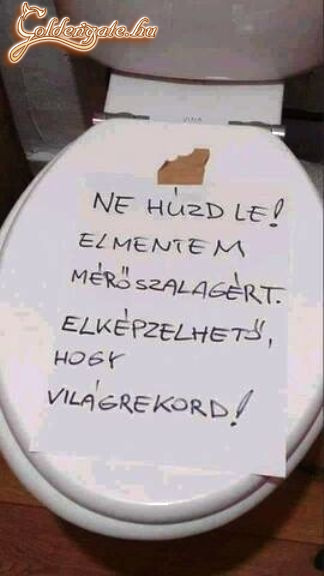 Goldengate.hu
NE HÚZD LE!
ELMENTEM
MÉRŐSZALAGÉRT.
ELKÉPZELHETŐ,
HOGY
VILÁGREKORD!